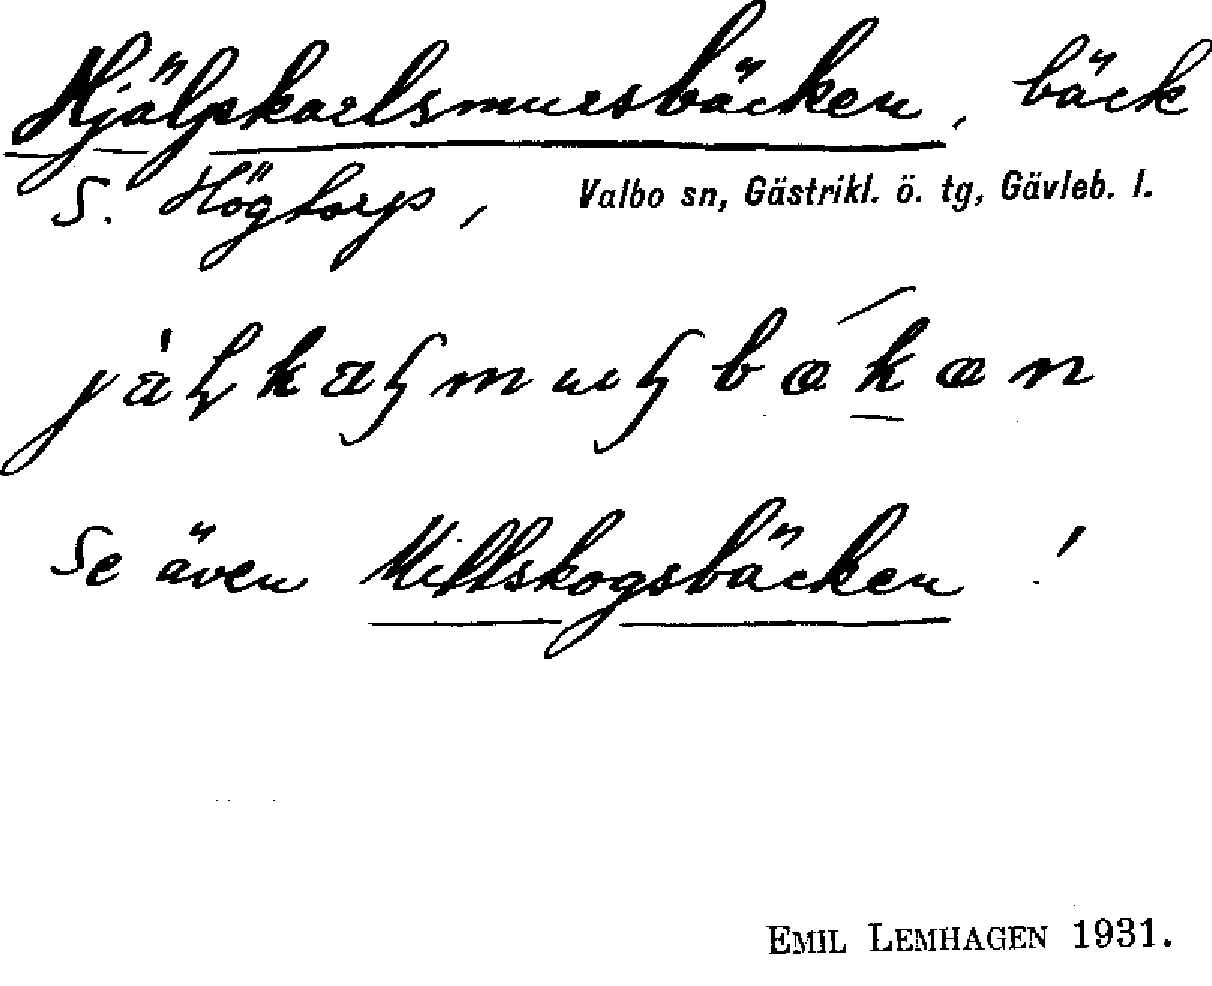 Hjälpkarlsmursbäcken, bäck
S. Högtorp, Valbo sn, Gästrikl. ö. tg, Gävleb. l.
Se även Millskogsbäcken!
EMIL LEMHAGEN 1931.